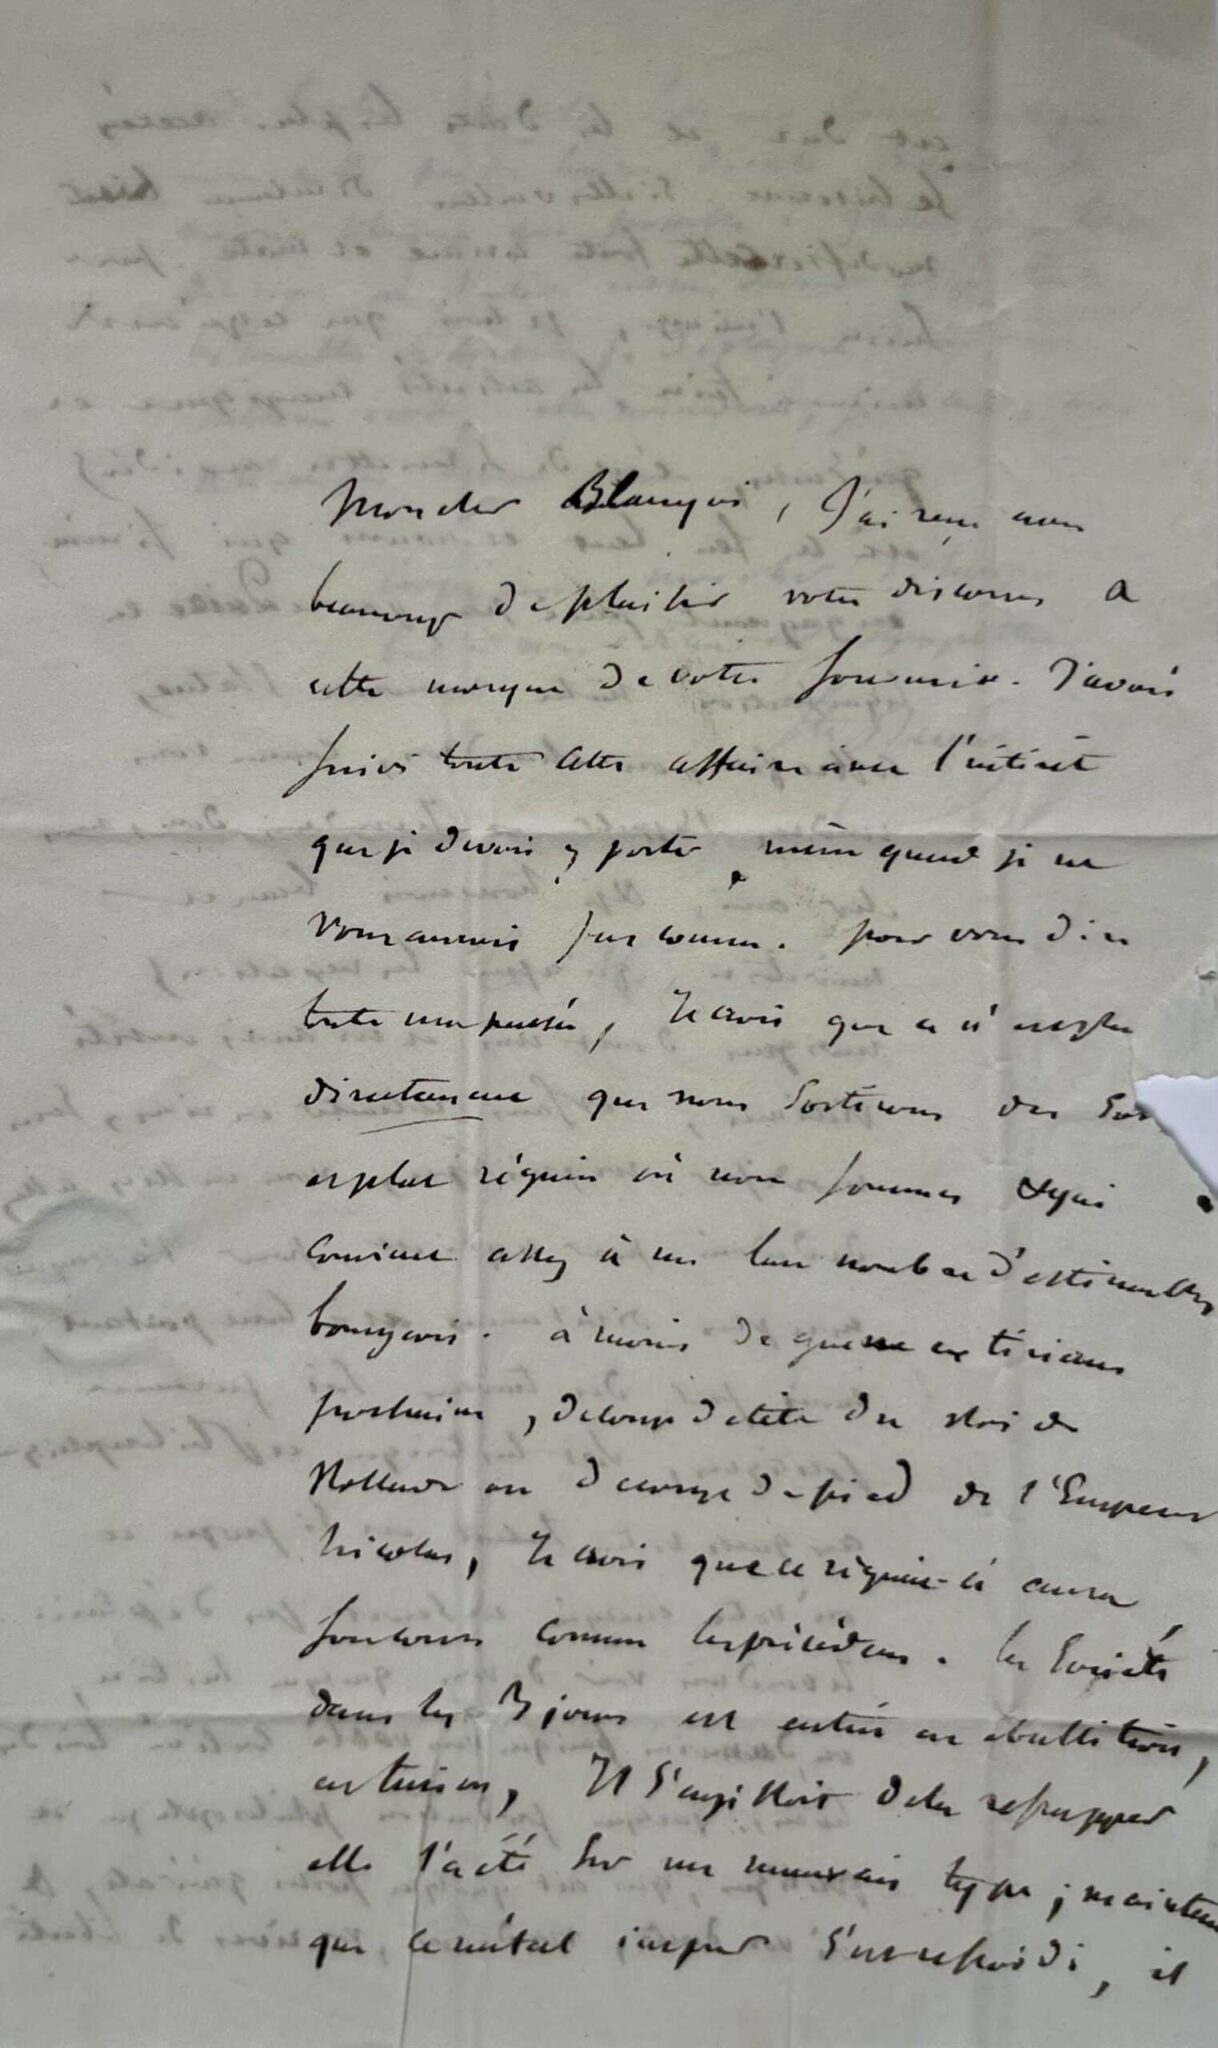 Mon cher Blanqui, J'ai reçu avec
beaucoup de plaisir votre discours &
cette marque de votre souvenir. J'avais
suivi toute cette affaire avec l'intérêt
que je devais y porter même quand je ne
vous aurais pas connu. pour vous dire
toute ma pensée, Je crois que ce n'est plus
directement que nous sortirons du
et plat régime où nous sommes & qui
convient assez à un bon nombre d'estimables
bourgeois. à moins de guerre extérieure
prochaine, de coup de tête du Roi de
Hollande ou de coup de pied de l'Empereur
Nicolas, Je crois que ce régime-ci aura
son cours comme les précédens. la Société
dans les 3 jours est entrée en ébullition,
en fusion, Il s'agissait de la refrapper
elle l'a été sur un mauvais type ; maintenant
que ce métal impur s'est refroidi, il